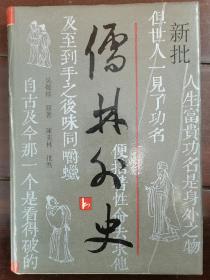 新批
儒林外史
人生富貴功名是身外之物
但世人一見了功名
便捨着性命去求他
及至到手之後味同嚼蠟
自古及今那一個是看得破的
吴敬梓 原著 陳美林 批點